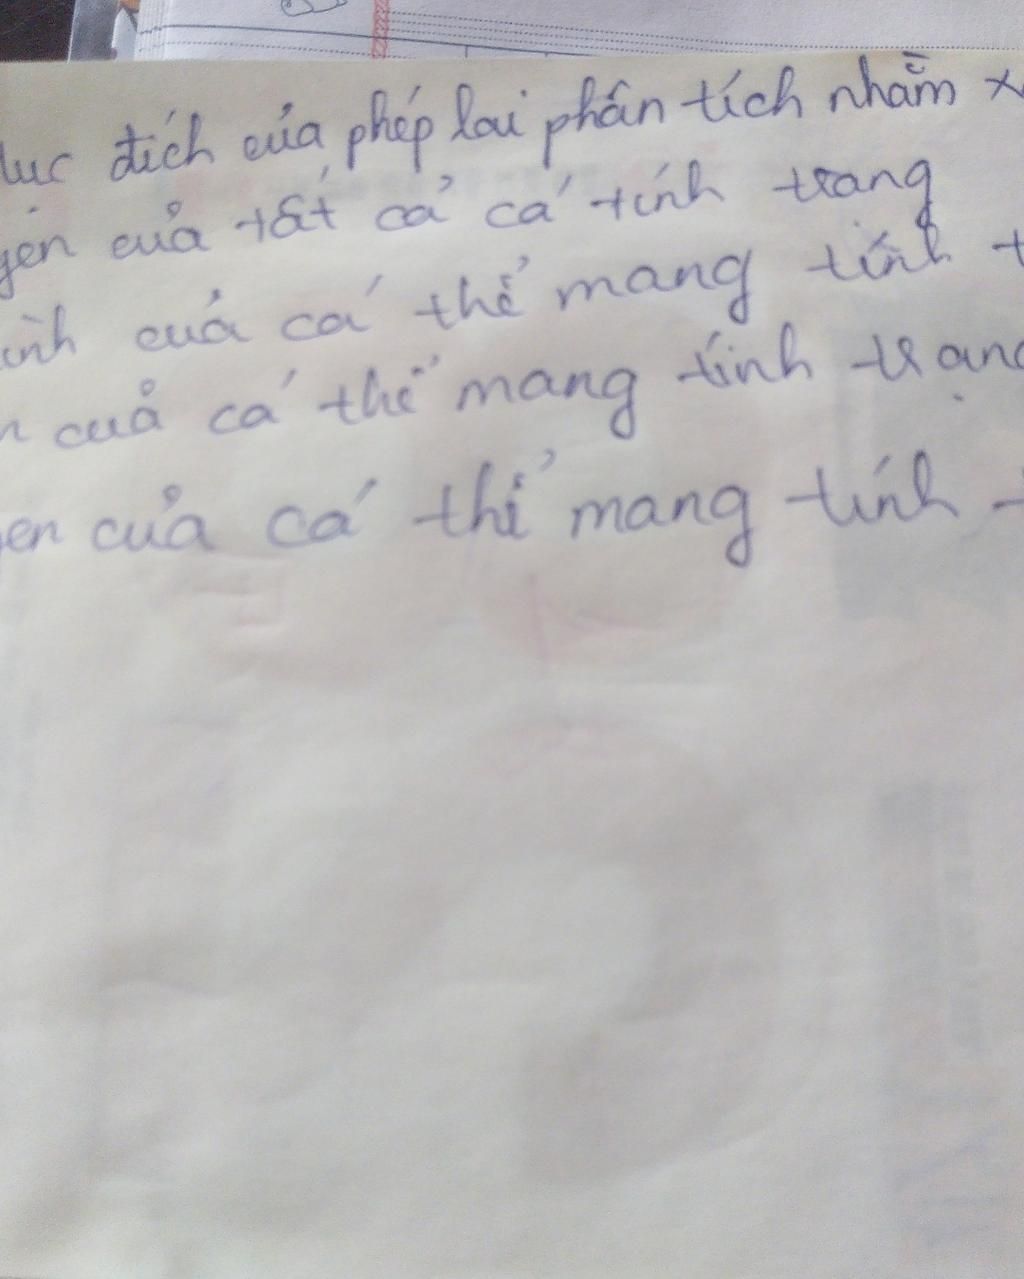 lục đích của phép lai phân tích nhằm x
yen của tất cả cá tính trang
inh của cá thể mang tính t
n cuả cá thể mang tính trạng
en của cá thể mang tính t